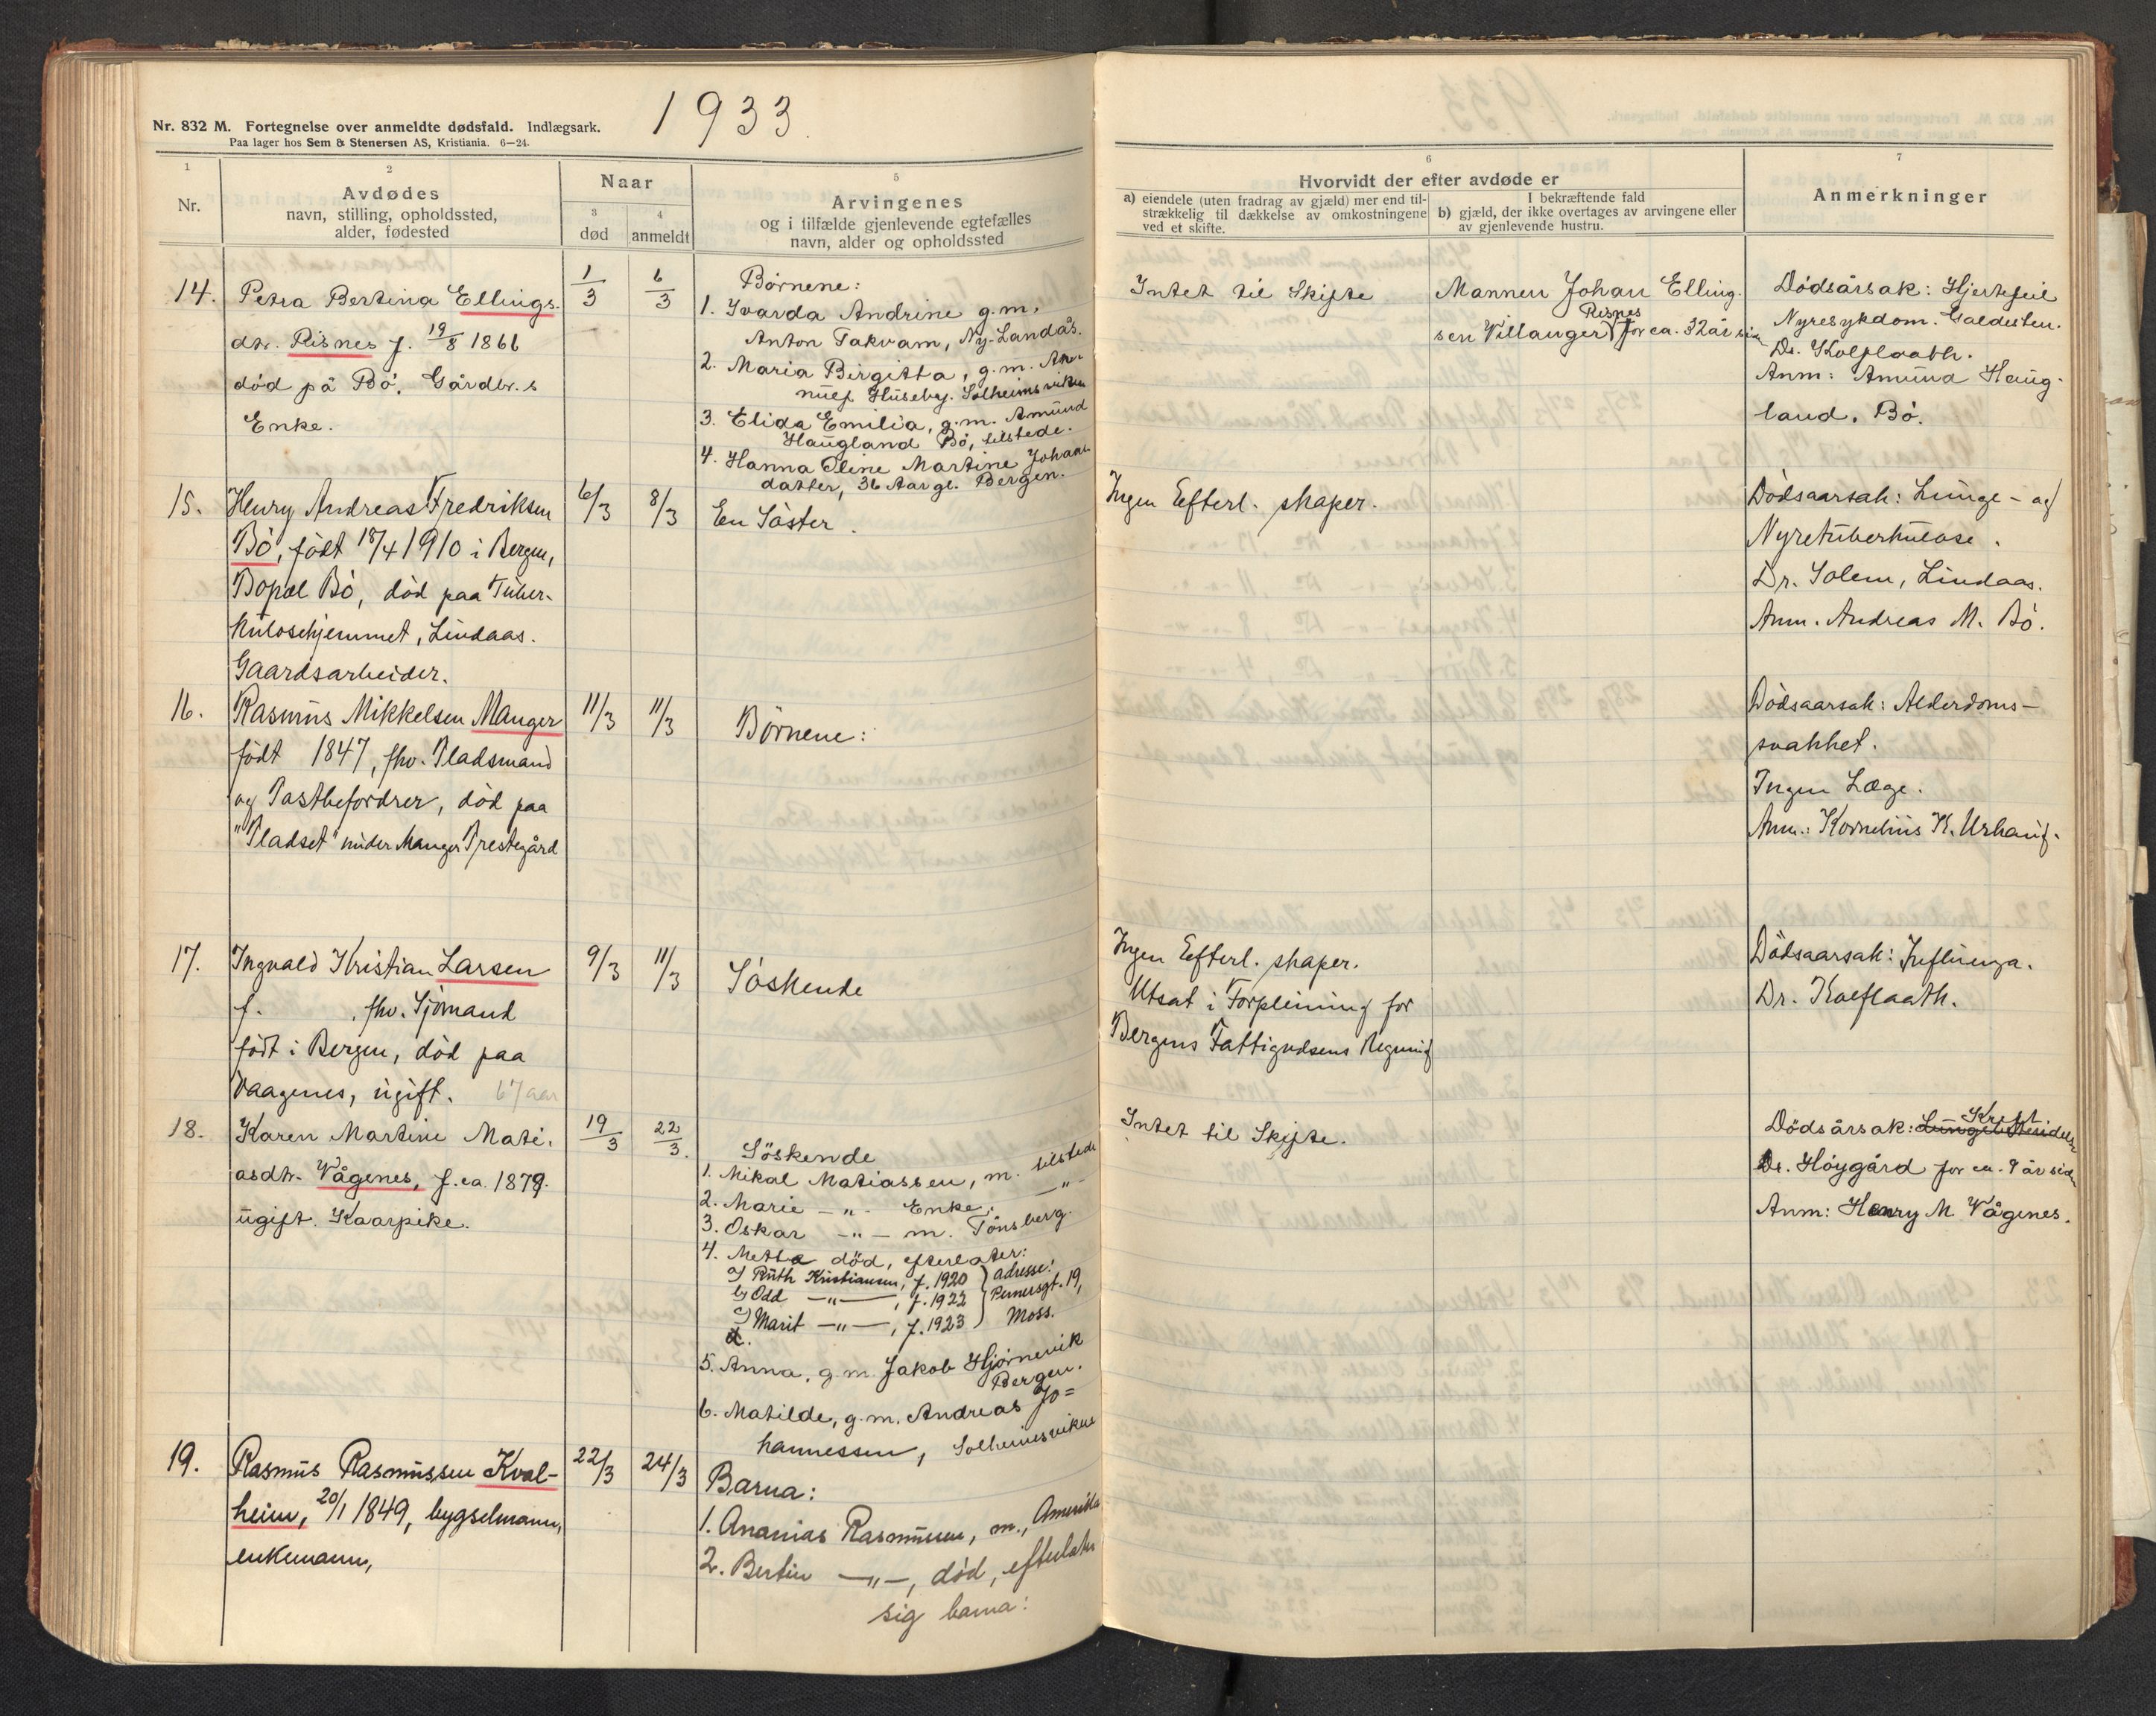 1933
Nr. 832 M. Fortegnelse over anmeldte dødsfald. Indlægsark.
Paa lager hos Sem & Stenersen AS, Kristiania. 6—24.
1
Nr.
2
Avdødes
navn, stilling, opholdssted,
alder, fødested
Naar
3
død
4
anmeldt
5
Arvingenes
og i tilfælde gjenlevende egtefælles
navn, alder og opholdssted
6
Hvorvidt der efter avdøde er
a) eiendele (uten fradrag av gjæld) mer end til-
strækkelig til dækkelse av omkostningene
ved et skifte.
I bekræftende fald
b) gjæld, der ikke overtages av arvingene eller
av gjenlevende hustru.
7
Anmerkninger
14.
Petra Bertina Ellings.
dtr. Risnes f. 19/8 1861
død på Bö. Gårdbr.s
Enke.
1/3
6/3
Børnene:
1. Ivarda Andrine g.m.
Anton Takvam, Ny-Landås.
2. Maria Birgitta, g.m.
Huseby. Solheimsviken
3. Elida Emilia, g.m. Amund
Haugland Bö, tilstede.
4. Hanna Oline Martine Johans
datter, 36 Aar gl. Bergen.
Intet til Skifte
Mannen Johan Elling.
Risnes
sen Villanger for ca. 32 år sia
Dödsårsak: Hjertefeil
Nyresykdom. Galdesten.
Dr. Kolflaath.
Anm: Amund Haug-
land. Bö.
15.
Henry Andreas Fredriksen
Bö, födt 18/4 1910 i Bergen,
Bopæl Bö, död paa Tuber-
kulosehjemmet, Lindaas.
Gaardsarbeider.
6/3
8/3
En Söster.
Ingen Efterl. skaper.
Dödsaarsak: Lunge- og
Nyretuberkulose.
Dr. Solem, Lindaas.
Anm. Andreas M. Bö.
16.
Rasmus Mikkelsen Manger
födt 1847, fhv. Pladsmand
og Postbefordrer, död paa
"Pladset" under Manger Prestegård
11/3
11/3
Börnene:
Dödsaarsak: Alderdoms-
svakhet.
Ingen Læge.
Anm.: Kornelius K. Urhaug.
17.
Ingvald Kristian Larsen
f. , fhv. Sjömand
födt i Bergen, död paa
Vaagenes, ugift. 67 aar
9/3
11/3
Söskende
Ingen Efterl. skaper.
Utsat i Forpleining for
Bergens Fattigvesens Regning
Dödsaarsak: Influenza.
Dr. Kolflaath.
18.
Karen Martine Mati.
asdtr. Vågenes, f. ca. 1879.
ugift. Kaarpike.
19/3
22/3.
Söskende
1. Mikal Matiassen, m. tilstede
2. Marie -"- Enke, -"-
3. Oskar -"- m. Tönsberg.
4. Metta död, efterlater:
a) Ruth Kristiansen, f. 1920
b) Odd -"-, f. 1922
c) Marit -"-, f. 1923
adresse:
19,
Moss.
5. Anna, g.m. Jakob Hjörnevik
Bergen.
6. Matilde, g.m. Andreas Jo=
hannessen, Solheimsviken
Intet til Skifte.
Kreft
Dödsårsak:
Dr. Höygård for ca. 9 år sia
Anm: Henry M. Vågenes.
19.
Rasmus Rasmussen Kval-
heim, 20/1 1849, bygselmann,
enkemann,
22/3
24/3
Barna:
1. Ananias Rasmussen, m., Amerika
2. Bertin -"-, död, efterlater
sig barna: